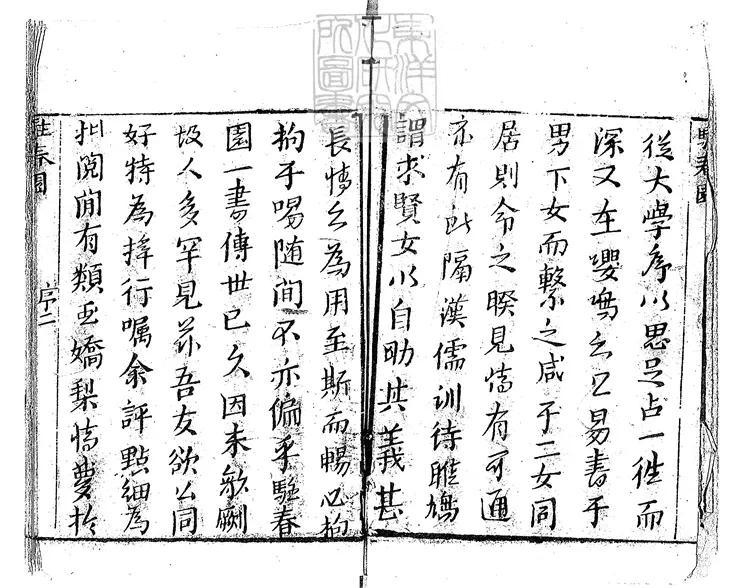 從大學序以思足占一徃而
深又在嚶鳴之口易書于
男下女而繫之咸于二女同
居則令之睽見情有可通
亦有此隔漢儒訓待雎鳩
謂求賢女以自助其義甚
長情之為用至斯而暢必拘
拘于喝随間不亦偏乎駐春
園一書傳世已久因未剞劂
故人多罕見茲吾友欲公同
好特為梓行囑余評點細為
批閱間有類玉嬌梨情夢柝
駐春園
序二